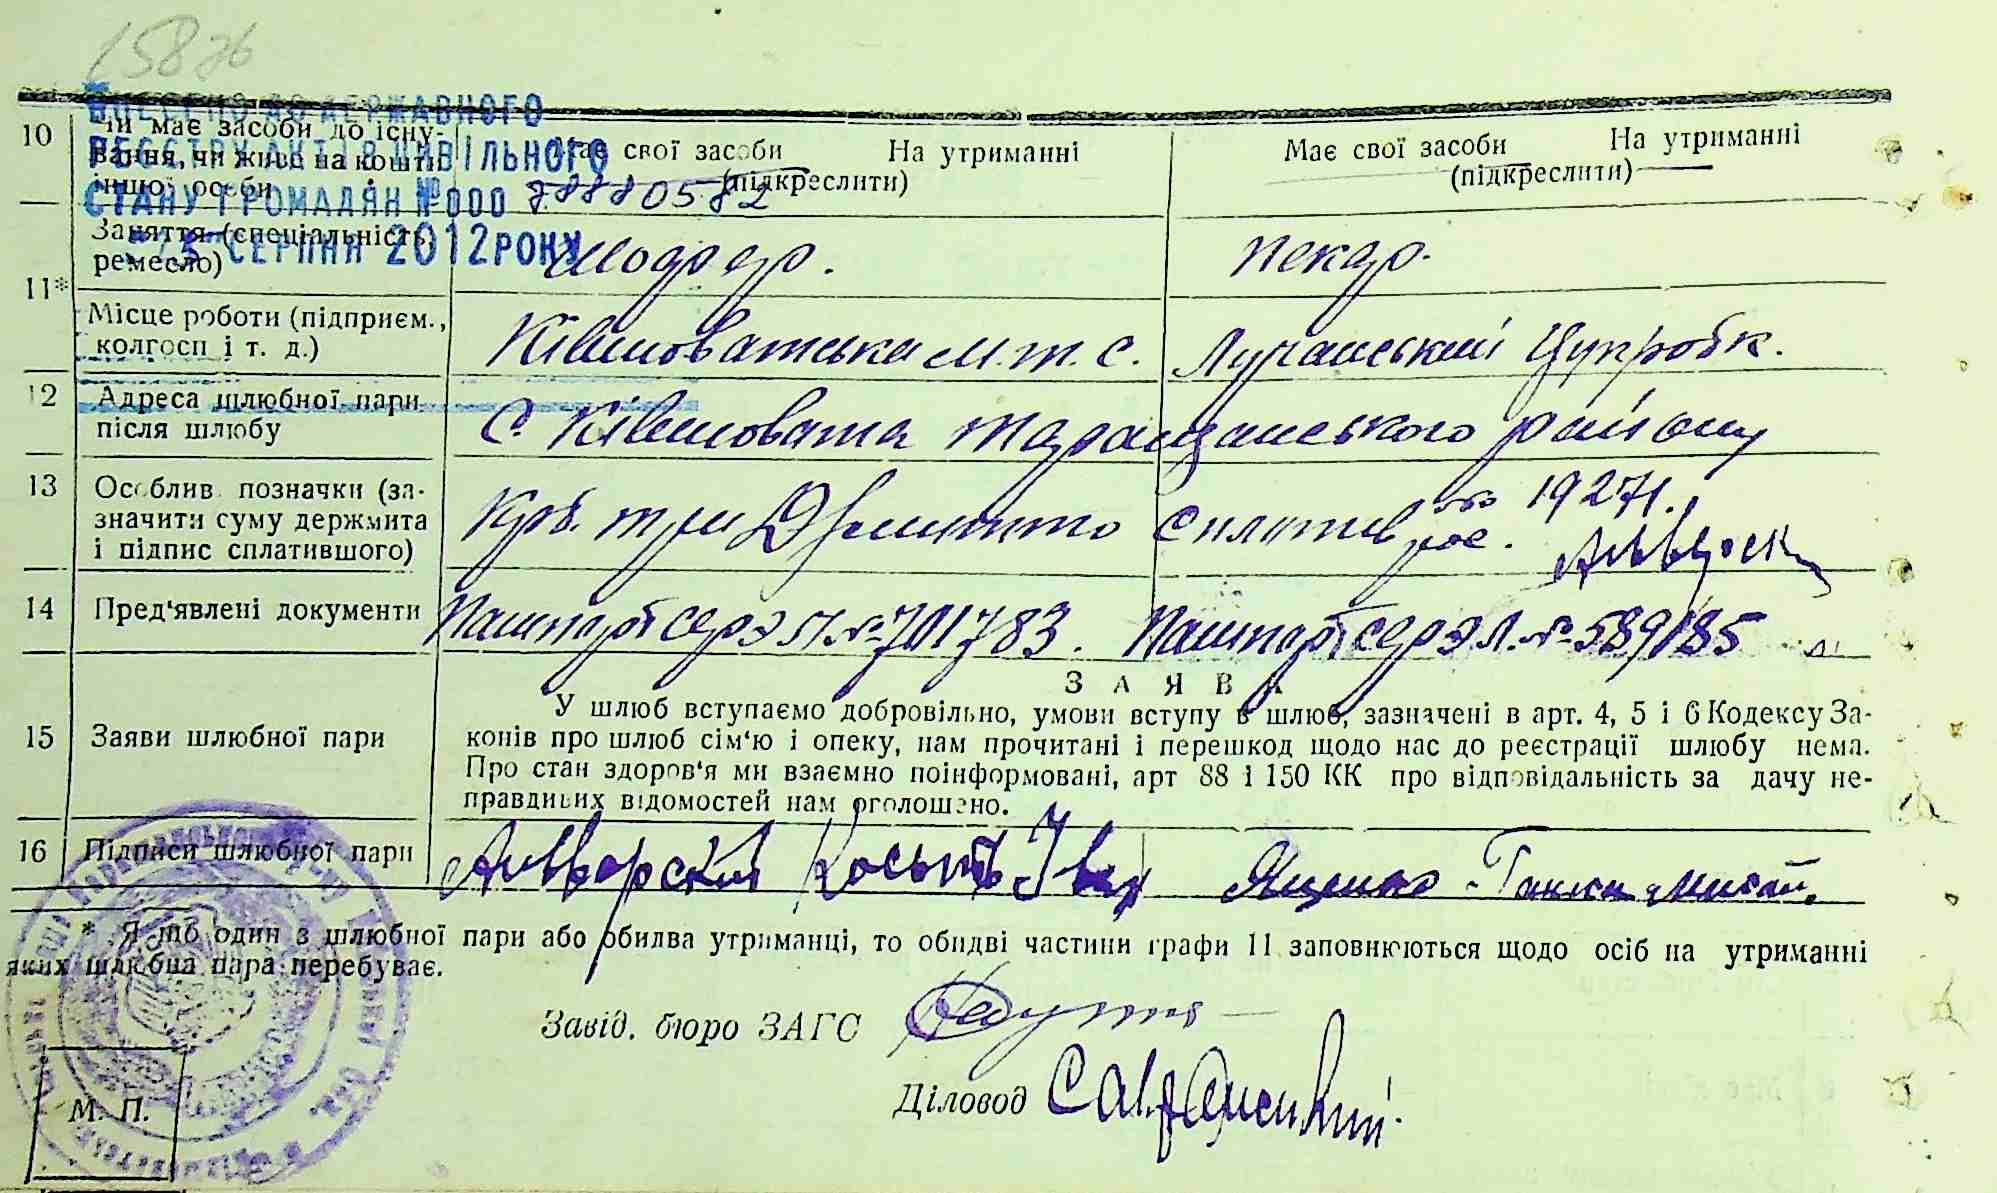 ВНЕСЕНО ДО ДЕРЖАВНОГО
РЕЄСТРУ АКТІВ ЦИВІЛЬНОГО
СТАНУ ГРОМАДЯН № 000
СЕРПНЯ 2012 РОКУ
10 Чи має засоби до існу-
вання, чи живе на кошти
іншої особи
Має свої засоби На утриманні
(підкреслити)
Має свої засоби На утриманні
(підкреслити)
11* Заняття (спеціальність,
ремесло)
Шофер. Пекар.
Місце роботи (підприєм.,
колгосп і т. д.)
Ківшоватська м.т.с. Лучанський Цукробк.
12 Адреса шлюбної пари
після шлюбу
С. Ківшовата Таращанського району
13 Особлив. позначки (за-
значити суму держмита
і підпис сплатившого)
Крб. три Держмито сплатив
14 Пред'явлені документи
Пашпорт сер ЭЛ № 701783. Пашпорт сер ЭЛ. № 589185
ЗАЯВА
15 Заяви шлюбної пари
У шлюб вступаємо добровільно, умови вступу в шлюб, зазначені в арт. 4, 5 і 6 Кодексу За-
конів про шлюб сім'ю і опеку, нам прочитані і перешкод щодо нас до реєстрації шлюбу нема.
Про стан здоров'я ми взаємно поінформовані, арт 88 і 150 КК про відповідальність за дачу не-
правдивих відомостей нам оголошено.
16 Підписи шлюбної пари
Яценко Ганна
* Якщо один з шлюбної пари або обидва утриманці, то обидві частини графи 11 заповнюються щодо осіб на утриманні
яких шлюбна пара перебуває.
Завід. бюро ЗАГС
Діловод
М. П.